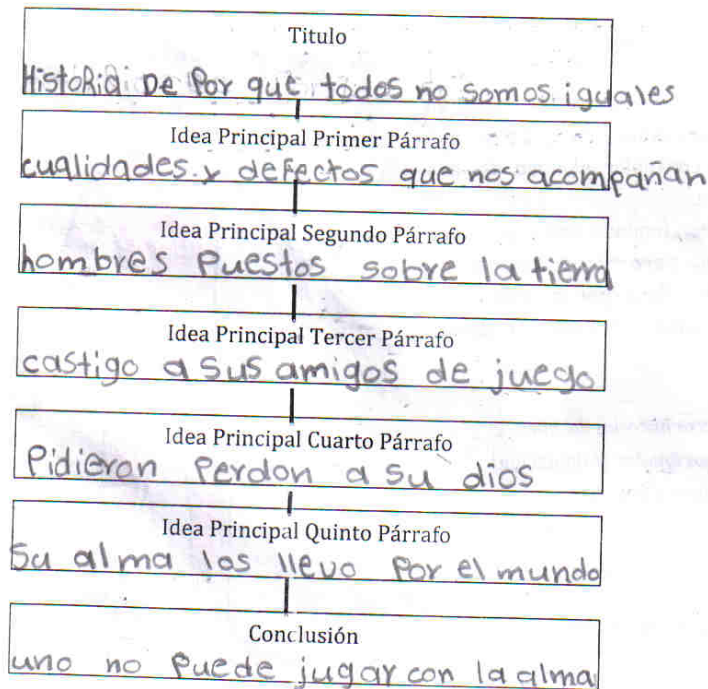 Titulo
HistoRia De Por que todos no somos iguales
Idea Principal Primer Párrafo
cualidades y defectos que nos acompañan
Idea Principal Segundo Párrafo
hombres Puestos sobre la tierra
Idea Principal Tercer Párrafo
castigo a sus amigos de juego
Idea Principal Cuarto Párrafo
Pidieron Perdon a su dios
Idea Principal Quinto Párrafo
Su alma los llevo Por el mundo
Conclusión
uno no Puede jugar con la alma